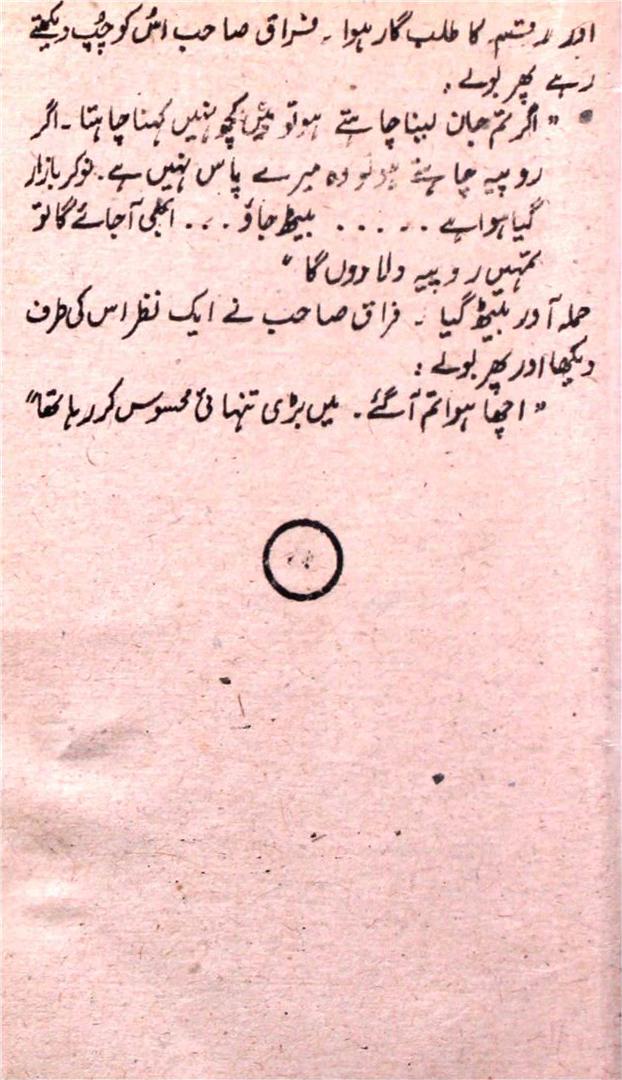 اور رقم کا طلب گار ہوا ۔ فراق صاحب اُس کو چُپ دیکھتے
رہے پھر بولے :
" اگر تم جان لینا چاہتے ہو تو میں کچھ نہیں کہنا چاہتا ۔ اگر
روپیہ چاہتے ہو تو وہ میرے پاس نہیں ہے ۔ نوکر بازار
گیا ہوا ہے ..... بیٹھ جاؤ ... ابھی آجائے گا تو
تمہیں روپیہ دلا دوں گا "
حملہ آور بیٹھ گیا ۔ فراق صاحب نے ایک نظر اس کی طرف
دیکھا اور پھر بولے :
" اچھا ہوا تم آگئے ۔ میں بڑی تنہائی محسوس کر رہا تھا "